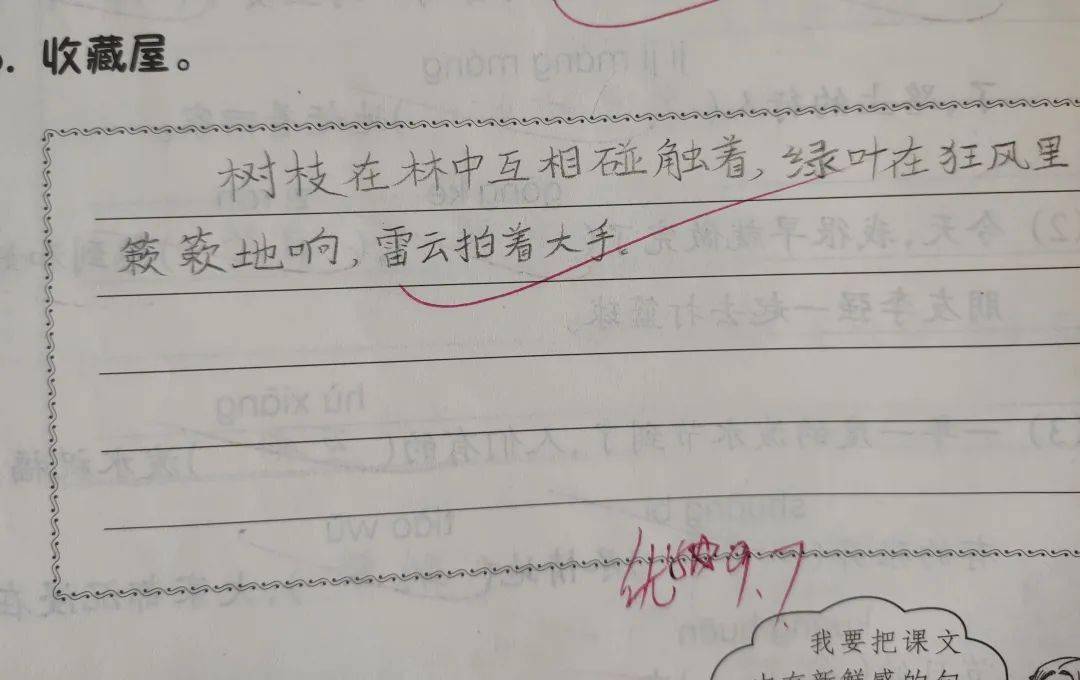 收藏屋。
树枝在林中互相碰触着，绿叶在狂风里
簌簌地响，雷云拍着大手。
优 9.7
我要把课文
新鲜感的句